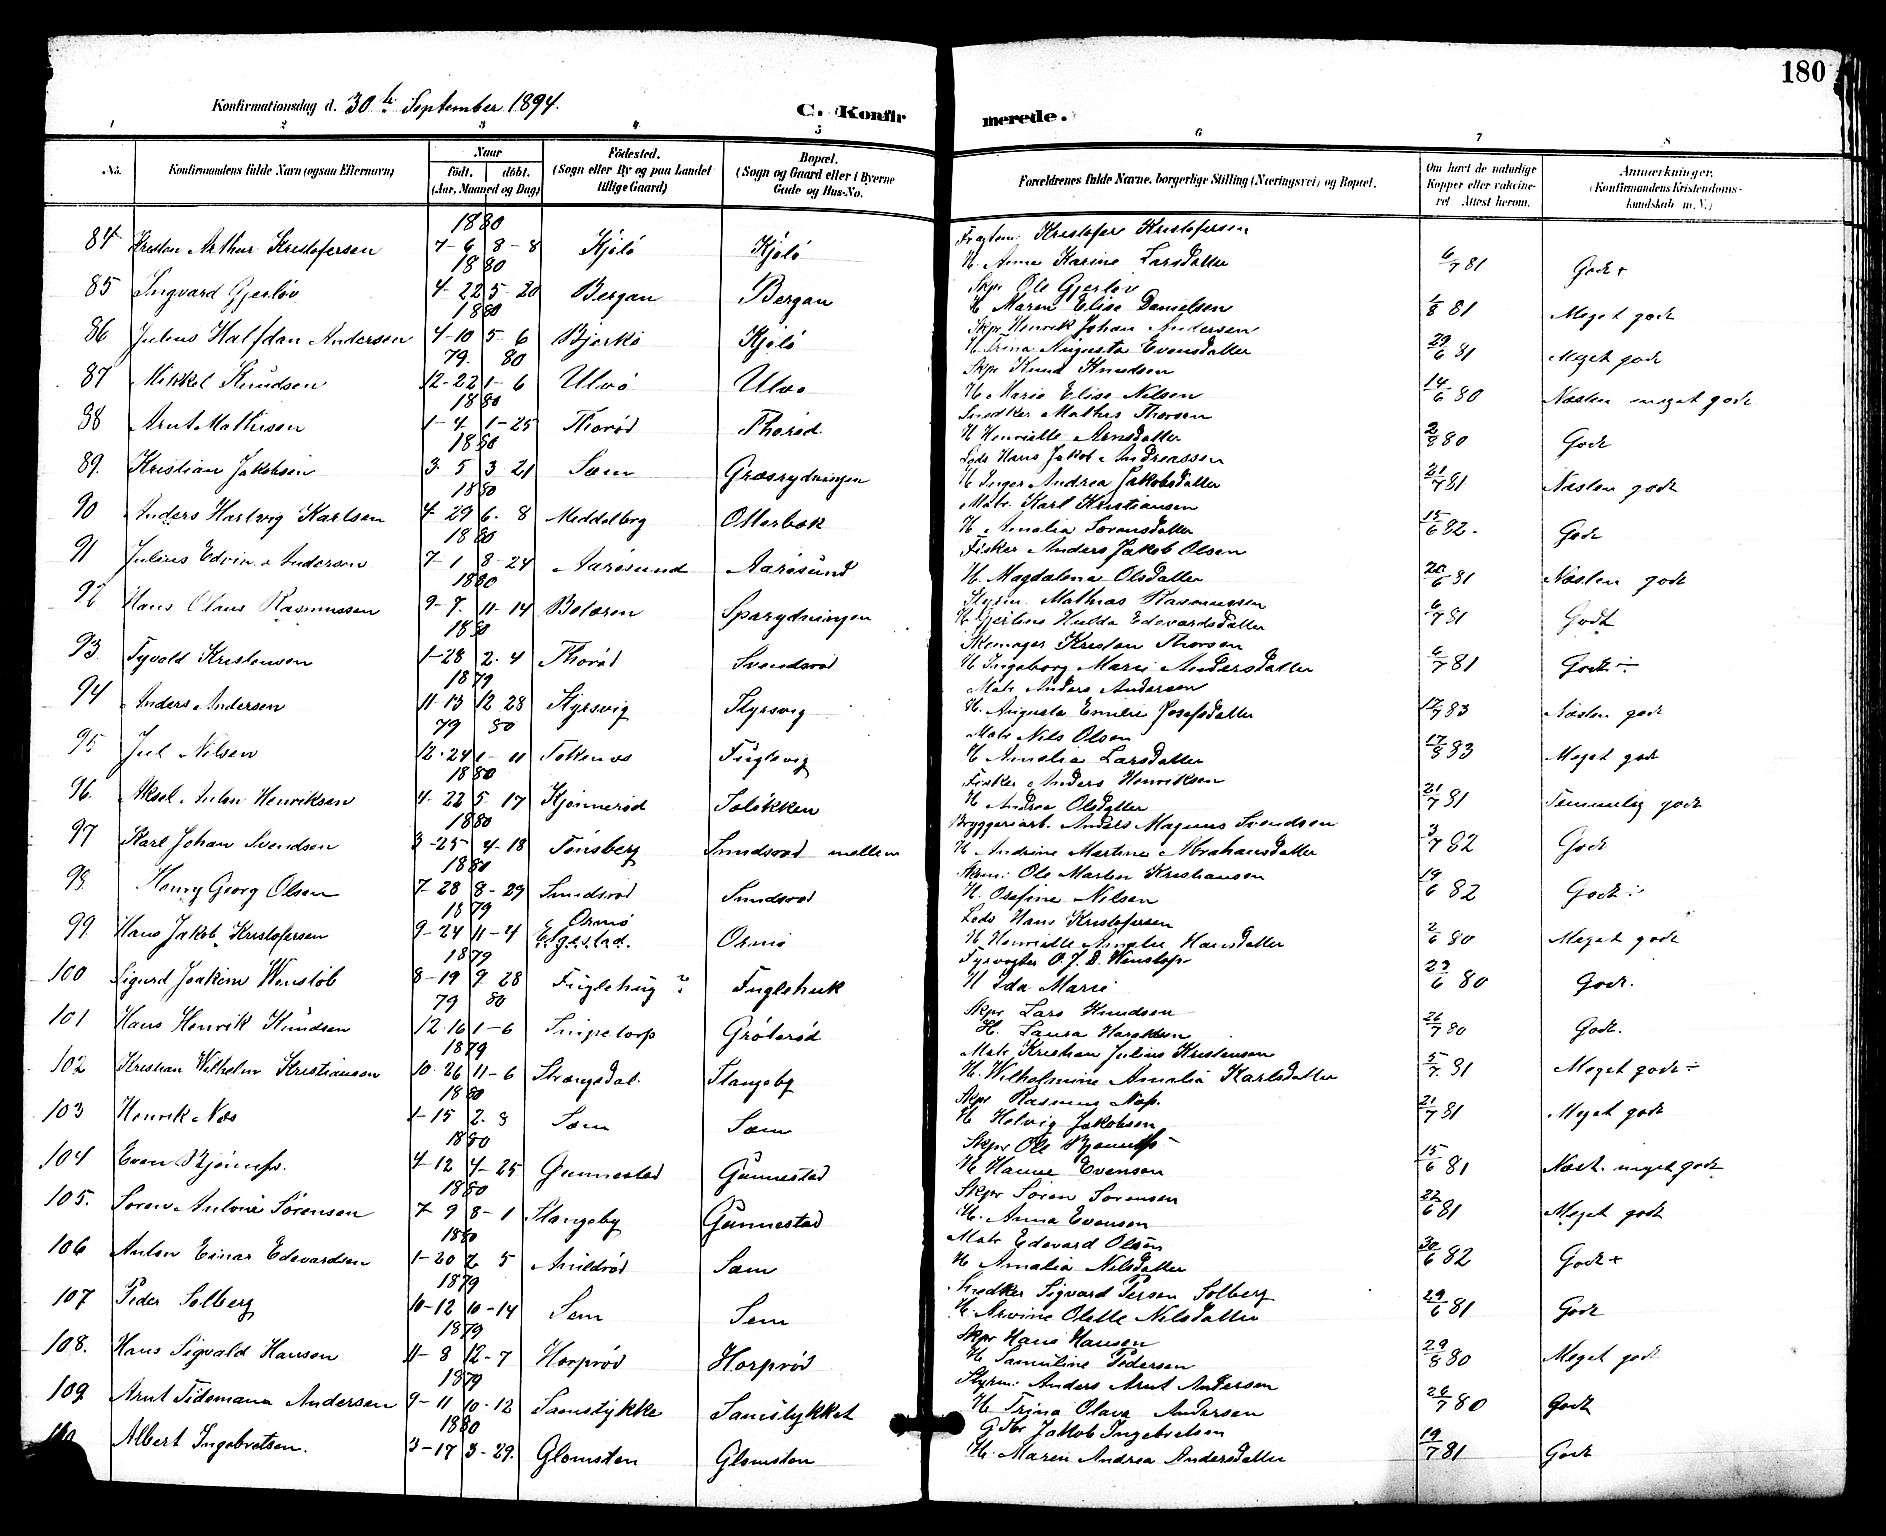 180
Konfirmationsdag d. 30te September 1894.
C. Konfirmerede.
1 2 3 4 5 6 7 8
No.
Konfirmandens fulde Navn (ogsaa Efternavn)
Naar
født. døbt.
(Aar, Maaned og Dag)
Fødested.
(Sogn eller By og paa Landet tillige Gaard)
Bopæl.
(Sogn og Gaard eller i Byerne Gade og Hus-No.
Forældrenes fulde Navne, borgerlige Stilling (Næringsvei) og Bopæl.
Om havt de naturlige Kopper eller vaccineret Attest herom.
Anmærkninger.
(Konfirmandens Kristendomskundskab m. V.)
1880 Kristofer Kristofersen
84 Kristian Arthur Kristofersen 7-6 8-8 Kjölö Kjölö H. Anna Karine Larsdatter 6/7 81 Godt+
1880 Skpr Ole Gjerlöv
85 Ingvard Gjerlöv 4-22 5-20 Bergan Bergan H. Maren Elise Danielsen 81 Meget godt
1880 Skpr Henrik Johan Andersen
86 Julius Halfdan Andersen 4-10 5-6 Bjerkö Kjölö H. Trina Augusta Evensdatter 29/6 81 Meget godt
79. 80 Skpr Knud Knudsen
87 Mikkel Knudsen 12-22 1-6 Ulvö Ulvö H. Marie Elise Nilsen 14/6 80 Næsten meget godt
1880 Snedker Mathis Thorsen
88 Arnt Mathisen 1-4 1-25 Thoröd Thoröd H. Henriette Arnsdatter 80 Godt
1880 Lods Hans Jakob Andreassen
89. Kristian Jakobsen 3-5 3-21 Sæm Græsrydningen H. Inger Andrea Jakobsdatter 21/7 81 Næsten godt
1880 Matr. Karl Kristiansen
90 Anders Hartvig Karlsen 4-29 6-8 Meddelborg Otterbæk H. Amalia Sorensdatter 15/6 82. Godt
1880 Fisker Anders Jakob Olsen
91 Julius Edvin Andersen 7-1 8-24 Aarösund Aarösund H. Magdalena Olsdatter 20/6 81 Næsten godt
1880 Styrm. Mathias Rasmussen
92 Hans Olaus Rasmussen 9-7 11-14 Bolæren Sparydningen H. Gjertine Hulda Edevardsdatter 6/7 81 Godt
1880 Skomager Kristen Thorsen
93 Tyvold Kristensen 1-28 2-4 Thoröd Svendsröd H. Ingeborg Marie Andersdatter 6/7 81 Godt÷
1879 Matr Anders Andersen
94 Anders Andersen 11-13 12-28 Styrsvig Styrsvig H. Augusta Emilie Josefsdatter 17/7 83 Næsten godt
79 80 Matr Nils Olsen
95 Jul Nilsen 12-24 1-11 Fuglevig H. Amalia Larsdatter 17/8 83 Meget godt
1880 Fisker Anders Henriksen
96. Aksel Anton Henriksen 4-22 5-17 Kjönneröd Solökken H. Andrea Olsdatter 21/7 81 Temmelig godt
1880 Bryggeriarb. Anders Magnus Svendsen
97 Karl Johan Svendsen 3-25 4-18 Tönsberg Smidsröd mellem H. Andrine Martine Abrahamsdatter 3/7 82 Godt
1880 Ole Martin Kristiansen
98 Henry Georg Olsen 7-28 8-29 Smidsröd Smidsröd H. Osefine Nilsen 19/6 82 Godt÷
1879 Ormö Lods Hans Kristofersen
99 Hans Jakob Kristofersen 9-24 11-4 Elgestad. Ormö H. Henriette Amalie Hansdatter 2/6 80 Meget godt
1879 Fyrvogter O. J. D. Wenstöp
100 Sigurd Joakim Wenstöb 8-19 9-28 Fuglehug? Fuglehuk H. Ida Marie 23/6 80 Godt.
79 80 Skpr Lars Knudsen
101 Hans Henrik Knudsen 12-16 1-6 Snipetorp Gröteröd H. Laura Haraldsen 26/7 80 Godt.
1879 Matr Kristian Julius Kristensen
102 Kristian Wilhelm Kristiansen 10-26 11-6 Strangsdal. Stangeby H. Wilhelmine Amalia Karlsdatter 5/7 81 Meget godt÷
1880 Skpr Rasmus Næss.
103 Henrik Næs 1-15 2-8 Sæm Sæm H. Helvig Jakobsen 21/7 81 Meget godt
1880 Skpr Ole Bjönness
104 Even Bjönness. 4-12 4-25 Gunnestad Gunnestad H. Hanne Evensen 15/6 81 Næst. meget godt
1880 Skpr Sören Sorensen
105. Soren Antone Sörensen 7-9 8-1 Stangeby Gunnestad H. Anna Evensen 22/6 81 Meget godt
1880 Matr Edevard Olsen
106 Anton Einar Edevardsen 1-20 2-5 Amildröd Sæm H. Amalia Nilsdatter 30/6 82 Godt+
1879 Snedker Sigvard Person Solberg
107 Peder Solberg 10-12 10-14 Sem Sem H. Arvine Olette Nilsdatter 29/6 81 Godt
1879 Skpr Hans Hansen
108. Hans Sigvald Hansen 11-8 12-7 Horpröd Horpröd H. Samuline Pedersen 29/8 80 Meget godt
1879 Styrm: Anders Arnt Andersen
109 Arnt Tidemann Andersen 9-11 10-12 Samstykke Samstykket H. Trina Olava Andersen 26/7 80 Godt
1880 Gbr Jakob Ingebretsen
110 Albert Ingebretsen. 3-17 3-29. Glomsten Glomsten H. Maren Andrea Andersdatter 19/7 81 Godt